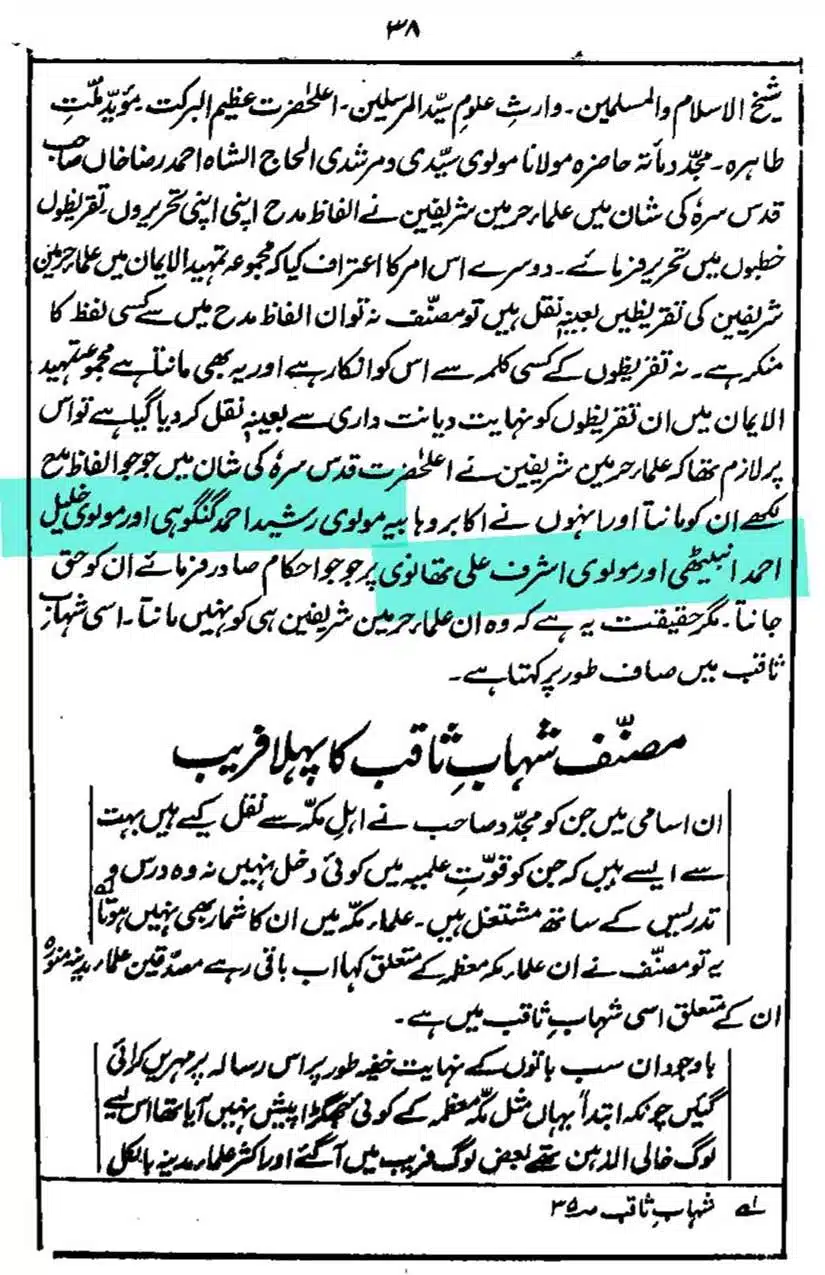 ۳۸
شیخ الاسلام والمسلمین۔ وارثِ علومِ سیّد المرسلین۔ اعلحٰضرت عظیم البرکت۔ مؤیّدِ ملّتِ
طاہرہ۔ مجدّد مأتہ حاضرہ مولانا مولوی سیّدی ومرشدی الحاج الشاہ احمد رضا خاں صاحب
قدس سرہٗ کی شان میں علماء حرمین شریفین نے الفاظ مدح اپنی اپنی تحریروں۔ تقریظوں
خطبوں میں تحریر فرمائے۔ دوسرے اس امر کا اعتراف کیا کہ مجموعہ تمہید الایمان میں علماء حرمین
شریفین کی تقریظیں بعینہٖ نقل ہیں تو مصنّف نہ تو ان الفاظ مدح میں سے کسی لفظ کا
منکر ہے۔ نہ تقریظوں کے کسی کلمہ سے اس کو انکار ہے اور یہ بھی مانتا ہے مجموعۂ تمہید
الایمان میں ان تقریظوں کو نہایت دیانت داری سے بعینہٖ نقل کر دیا گیا ہے تو اس
پر لازم تھا کہ علماء حرمین شریفین نے اعلحٰضرت قدس سرہٗ کی شان میں جو جو الفاظ مدح
لکھے ان کو مانتا اور انہوں نے اکابر وہابیہ مولوی رشید احمد گنگوہی اور مولوی خلیل
احمد انبیٹھی اور مولوی اشرف علی تھانوی پر جو جو احکام صادر فرمائے ان کو حق
جانتا۔ مگر حقیقت یہ ہے کہ وہ ان علماء حرمین شریفین ہی کو نہیں مانتا۔ اسی شہاب
ثاقب میں صاف طور پر کہتا ہے۔
مصنّف شہابِ ثاقب کا پہلا فریب
ان اسامی میں جن کو مجدّد صاحب نے اہلِ مکّہ سے نقل کیے ہیں بہت
سے ایسے ہیں کہ جن کو قوّتِ علمیہ میں کوئی دخل نہیں نہ وہ درس و
تدریس کے ساتھ مشتغل ہیں۔ علماء مکّہ میں ان کا شمار بھی نہیں ہوتا لہ
یہ تو مصنّف نے ان علماء مکہ معظمہ کے متعلق کہا اب باقی رہے مصدّقین علماء مدینہ منورہ
ان کے متعلق اسی شہابِ ثاقب میں ہے۔
باوجود ان سب باتوں کے نہایت خفیہ طور پر اس رسالہ پر مہریں کرائی
گئیں چونکہ ابتداً یہاں مثل مکّہ معظمہ کے کوئی جھگڑا پیش نہیں آیا تھا اس لیے
لوگ خالی الذہن تھے بعض لوگ فریب میں آ گئے اور اکثر علماء مدینہ بالکل
لہ شہابِ ثاقب صـ ۳۵